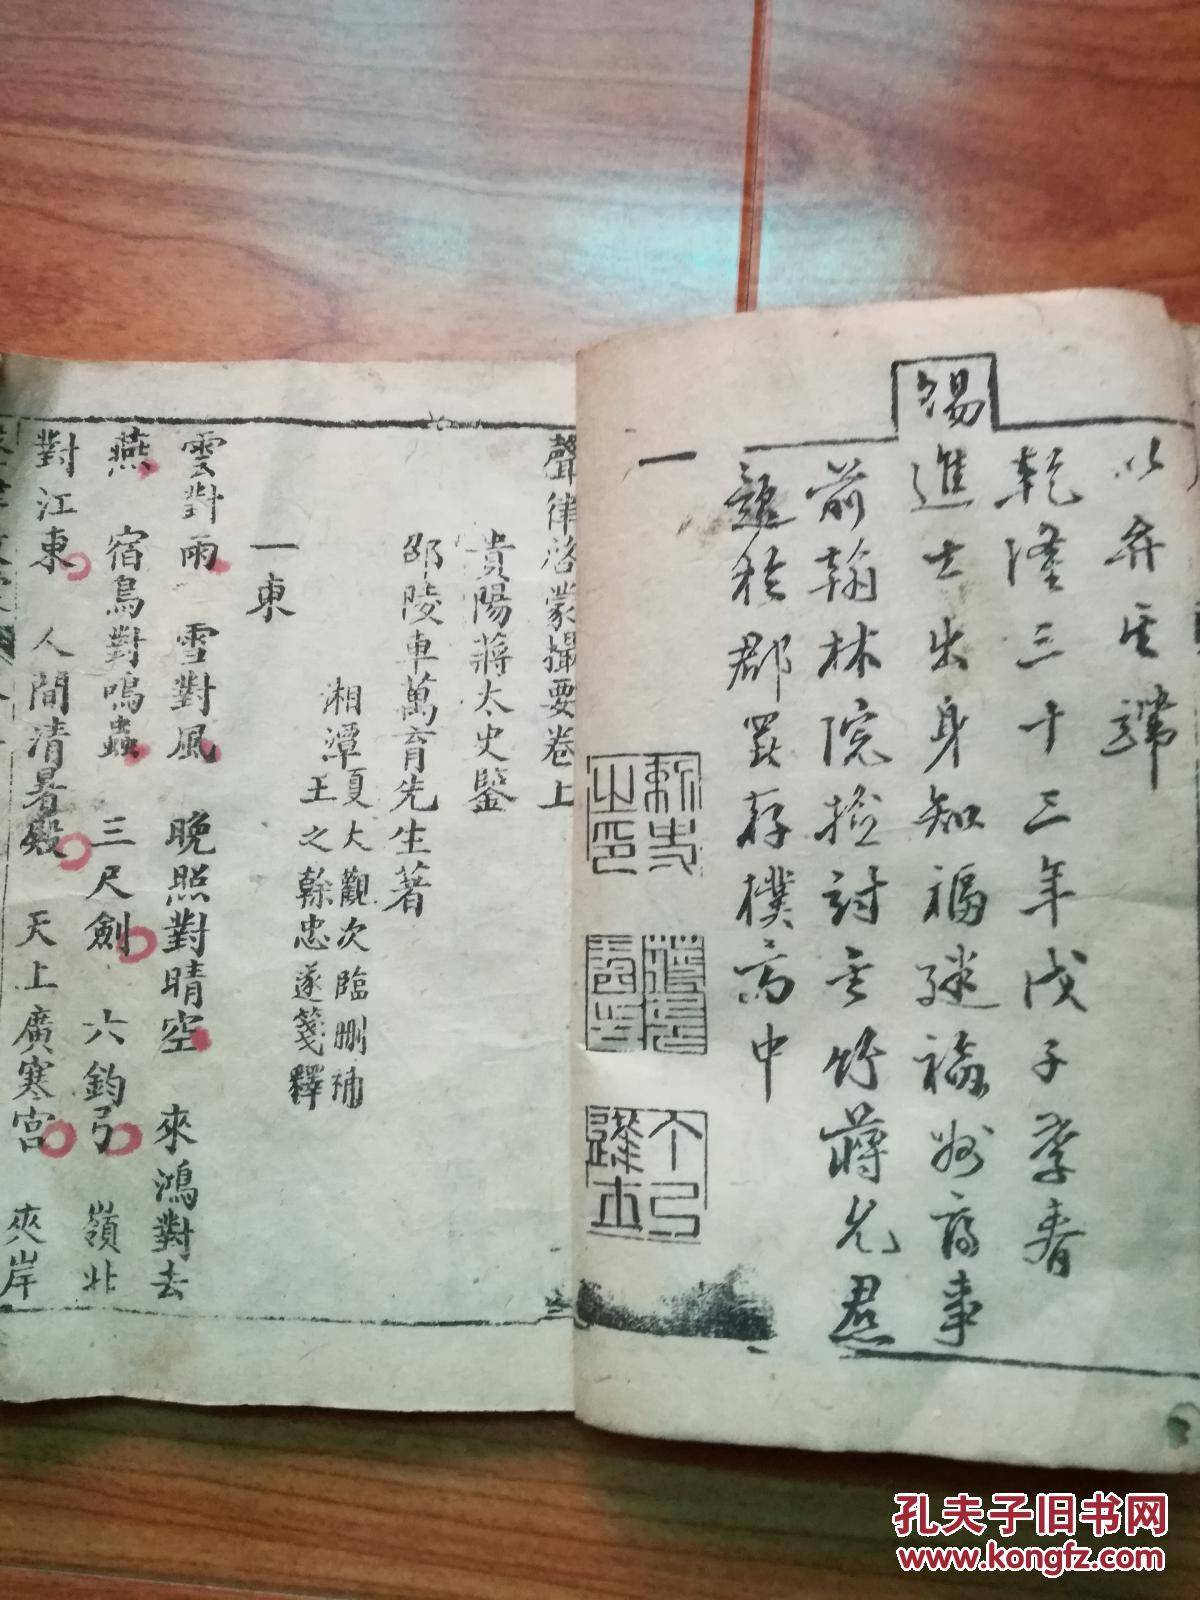 乾隆三十三年戊子季春
賜進士出身知福建福州府事
前翰林院檢討
蔣允焄
題於郡署存樸堂中
聲律啓蒙撮要卷上
貴陽蔣太史鑒
邵陵車萬育先生著
湘潭夏大觀次臨刪補
王之幹忠遂箋釋
一東
雲對雨 雪對風 晚照對晴空 來鴻對去
燕 宿鳥對鳴蟲 三尺劍 六鈞弓 嶺北
對江東 人間清暑殿 天上廣寒宮 夾岸
孔夫子旧书网
www.kongfz.com